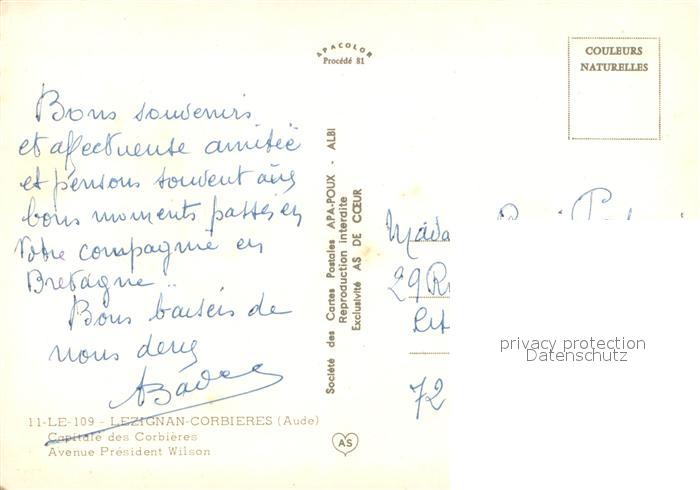 APACOLOR
Procédé 81
COULEURS
NATURELLES
Bons souvenirs
et affectueuse amitié
et pensons souvent aux
bons moments passés en
Votre compagnie en
Bretagne..
Bons baisers de
nous deux
Société des Cartes Postales APA-POUX - ALBI
Reproduction interdite
Exclusivité AS DE CŒUR
29 R
72
privacy protection
Datenschutz
11-LE-109 - LEZIGNAN-CORBIERES (Aude)
Capitale des Corbières
Avenue Président Wilson
AS